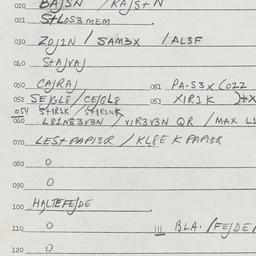 020 BAJSN / KAJS+N
021 S+LOS3MEM
030 ZOJ1N / SAM3X / AL3F
040 S+AJVAJ
050 CAJRAJ 051 PA.S3X (022
052 SEJGL8 / CEJGL8 053 XIR1K
054 S+IR1K / S+IR1NK
060 L81N83V3N / VIR3V3N QR / MAX L1
070 LES+PAPI3R / KL8E K PAP3R
080 0
090 0
100 HALTEFEJDE
110 0 111 BLA. / FEJDE
120 0